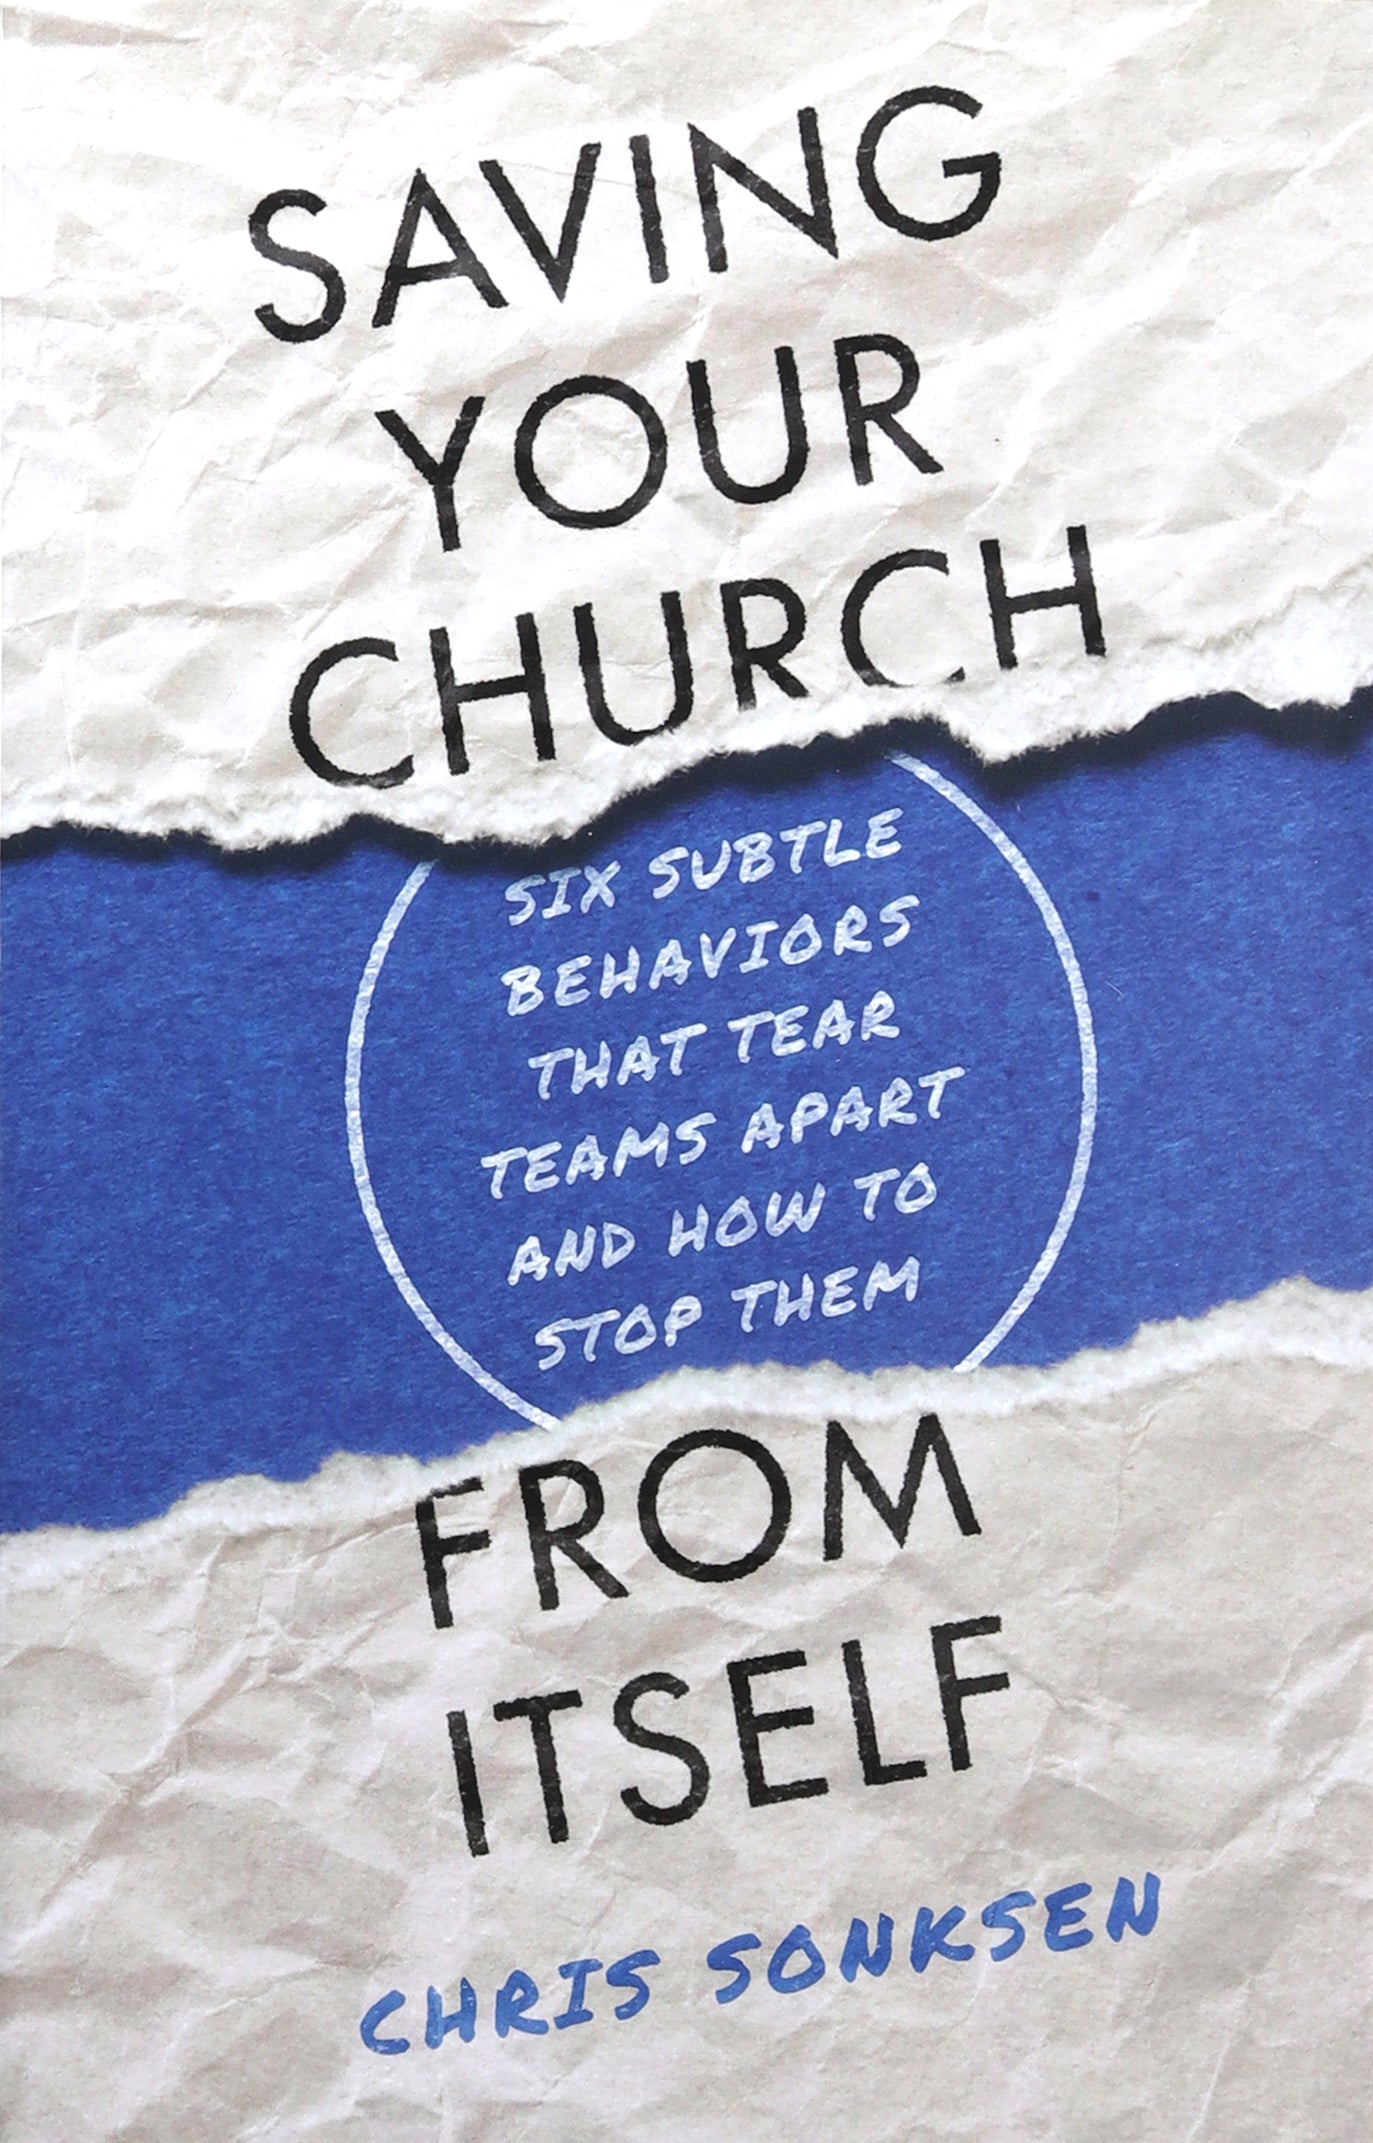 SAVING
YOUR
CHURCH
SIX SUBTLE
BEHAVIORS
THAT TEAR
TEAMS APART
AND HOW TO
STOP THEM
FROM
ITSELF
CHRIS SONKSEN